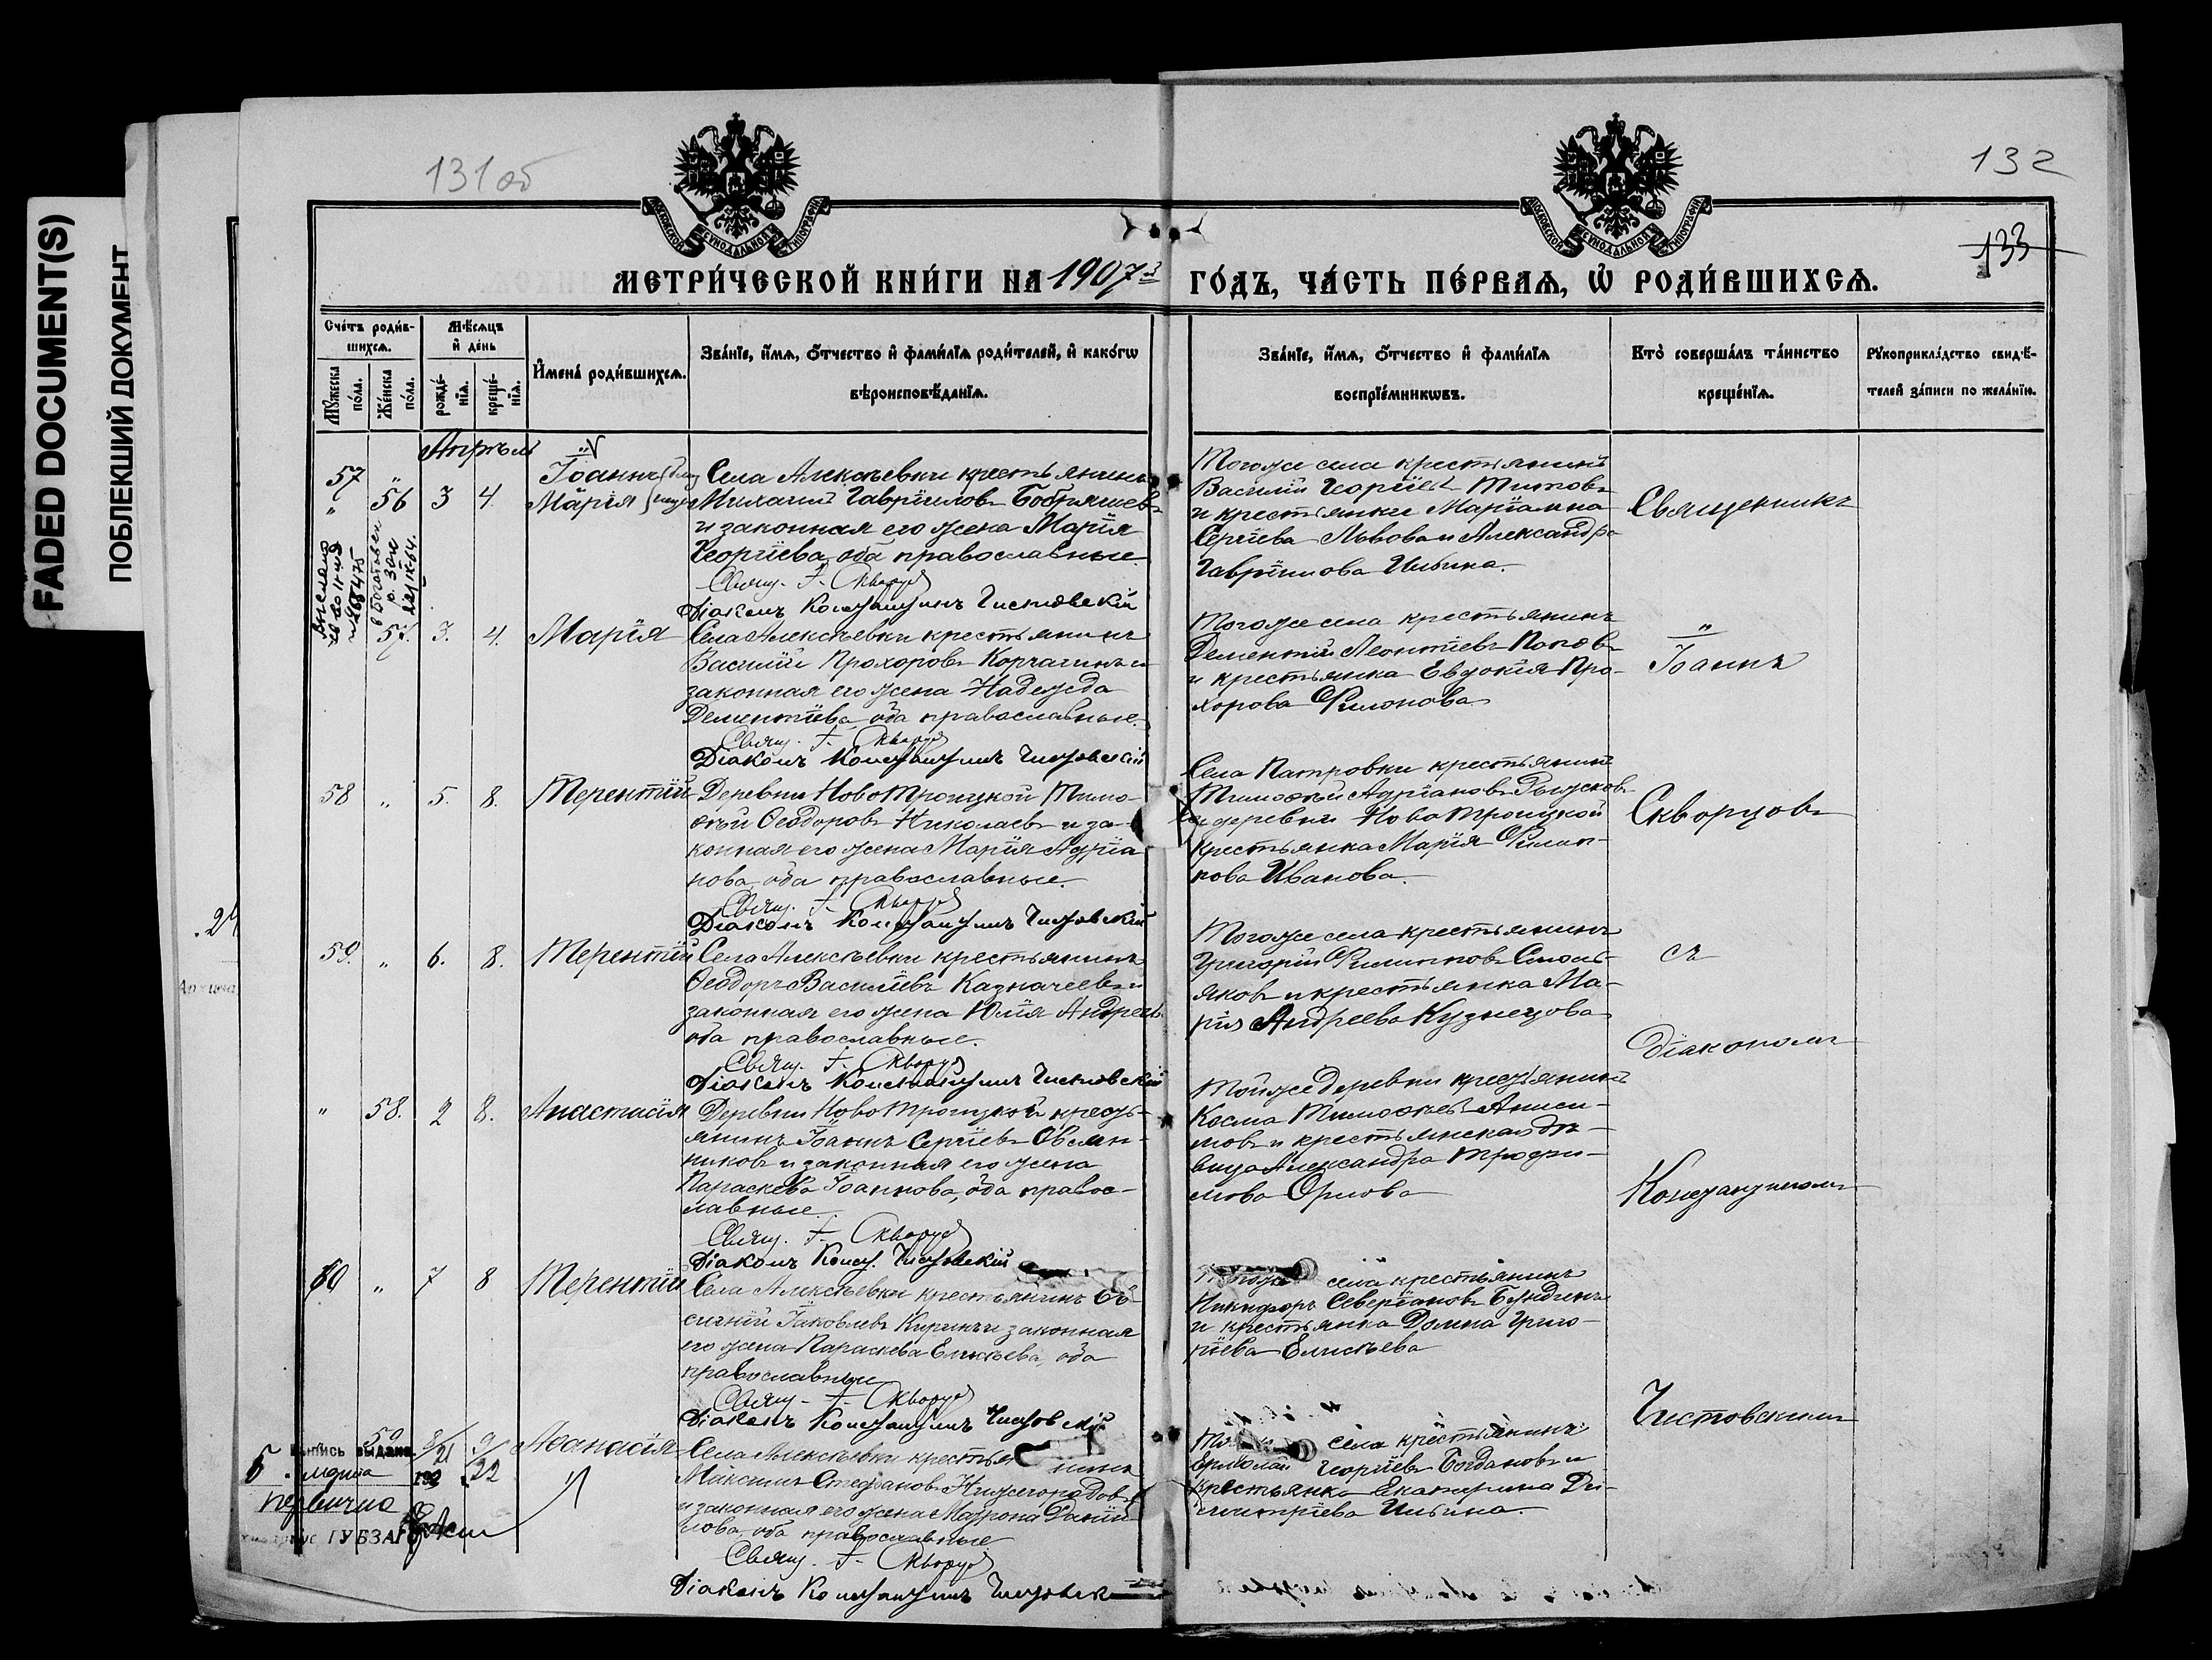 FADED DOCUMENT(S)
ПОБЛЕКШИЙ ДОКУМЕНТ
131 об
132
133
МЕТРИ́ЧЕСКОЙ КНИ́ГИ НА 1907й ГО́ДЪ, ЧА́СТЬ ПЕ́РВАѦ, Ѡ҆ РОДИ́ВШИХСѦ.
Сче́тъ роди́в-
шихсѧ.
Мѣ́сѧцъ
и҆ де́нь
Мꙋ́жеска по́ла.
Же́нска по́ла.
рожде́-нїѧ.
креще́-нїѧ.
И҆мена̀ роди́вшихсѧ.
Зва́нїе, и҆́мѧ, ѻ҆́тчество и҆ фами́лїѧ роди́телей, и҆ како́гѡ
вѣроисповѣ́данїѧ.
Зва́нїе, и҆́мѧ, ѻ҆́тчество и҆ фами́лїѧ
воспрїе́мникѡвъ.
Кто̀ соверша́лъ та́инство
креще́нїѧ.
Рꙋкоприкла́дство свидѣ́-
телей за́писи по жела́нїю.
Апрѣль
57 " 56 3 4. Іоаннъ Марія
Села Алексѣевки крестьянинъ
Михаилъ Гавріиловъ
и законная его жена Марія
Георгіева, оба православные.
Свящ. І. Скворцов
Діаконъ Константинъ Чистовскій
Тогоже села крестьянинъ
Василій Георгіевъ Титовъ
и крестьянки Маріамна
Сергіева Львова и Александра
Гавріилова Ильина.
57. 3. 4. Марія
Села Алексѣевки крестьянинъ
Василій Прохоровъ Корчагинъ и
законная его жена Надежда
Дементіева, оба православные.
Свящ. І. Скворцов
Діаконъ Константинъ Чистовскій
Тогоже села крестьянинъ
Дементій Леонтіевъ Поповъ
и крестьянка Евдокія Про-
хорова Филонова
58 " 5. 8. Терентій
Деревни НовоТроицкой Тимо-
ѳей Ѳеодоровъ Николаевъ и за-
конная его жена Марія Адріа
нова, оба православные.
Свящ. І. Скворцов
Діаконъ Константинъ Чистовскій
Села Патровки крестьянинъ
Тимоѳей Адріановъ
и деревни НовоТроицкой
крестьянка Марія Филип-
пова Иванова.
59. " 6. 8. Терентій
Села Алексѣевки крестьянинъ
Ѳеодоръ Василіевъ Казначеевъ и
законная его жена Юлія Андреева
оба православные.
Свящ. І. Скворцов
Діаконъ Константинъ Чистовскій
Тогоже села крестьянинъ
Григорій Филипповъ Смоль-
яковъ и крестьянка Ма-
рія Андреева Кузнецова
" 58. 2 8. Анастасія
Деревни НовоТроицкой кресть-
янинъ Іоаннъ Сергіевъ Овсян-
никовъ и законная его жена
Параскева Іоаннова, оба правос-
лавные.
Свящ. І. Скворцов
Діаконъ Конст. Чистовскій
Тойже деревни крестьянинъ
Косма Тимоѳеевъ Аниси-
мовъ и крестьянская дѣ-
вица Александра Трофи-
мова Орлова
60 " 7 8 Терентій
Села Алексѣевки крестьянинъ
Іаковлевъ Киринъ и законная
его жена Параскева Елисѣева, оба
православные
Свящ. І. Скворцов
Діаконъ Константинъ Чистовскій
Тогоже села крестьянинъ
Никифоръ Северіановъ Бундинъ
и крестьянка Домна Григо-
ріева Елисѣева
59 8/21 9/22 Аѳанасія
Села Алексѣевки крестьянинъ
Максимъ Стефановъ Нижегородовъ
и законная его жена Матрона Даніи-
лова, оба православные
Свящ. І. Скворцов
Діаконъ Константинъ Чистовск
села крестьянинъ
Ермолай Георгіевъ Богдановъ и
крестьянка Екатерина Ди-
митріева Ильина.
Священникъ
"
Іоаннъ
Скворцовъ
съ
діакономъ
Константиномъ
Чистовскимъ
выпись выдана
5 марта 192
первично
ГУБЗАГС